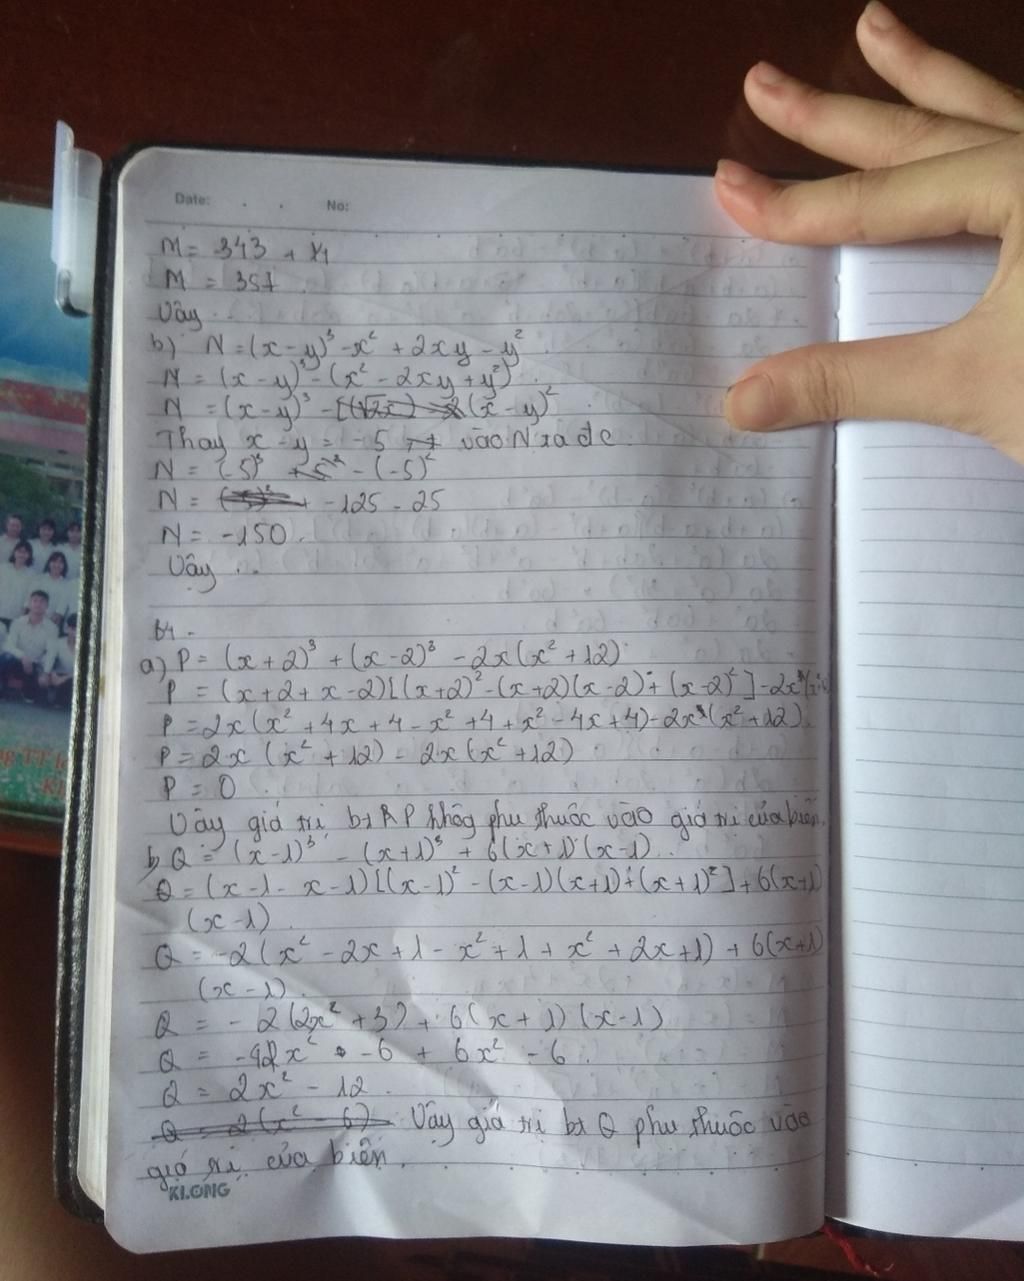 Date: . . No:
M = 343 + 14
M = 357
Vậy ...
b) N = (x - y)³ - x² + 2xy - y²
N = (x - y)³ - (x² - 2xy + y²)
N = (x - y)³ - (x - y)²
Thay x - y = -5 vào N ta đc
N = (-5)³ - (-5)²
N = -125 - 25
N = -150.
Vậy ..
b4.
a) P = (x + 2)³ + (x - 2)³ - 2x(x² + 12)
P = (x + 2 + x - 2)[(x + 2)² - (x + 2)(x - 2) + (x - 2)²] - 2x
P = 2x(x² + 4x + 4 - x² + 4 + x² - 4x + 4) - 2x(x² + 12)
P = 2x (x² + 12) - 2x (x² + 12)
P = 0
Vậy giá trị bt P khôg phụ thuộc vào giá trị của biến.
b, Q = (x - 1)³ - (x + 1)³ + 6(x + 1)(x - 1)
Q = (x - 1 - x - 1)[(x - 1)² - (x - 1)(x + 1) + (x + 1)²] + 6(x + 1)
(x - 1)
Q = -2(x² - 2x + 1 - x² + 1 + x² + 2x + 1) + 6(x + 1)
(x - 1)
Q = - 2(2x² + 3) + 6(x + 1)(x - 1)
Q = -2x² - 6 + 6x² - 6.
Q = 2x² - 12
Vậy giá trị bt Q phụ thuộc vào
giá trị của biến.
KLONG